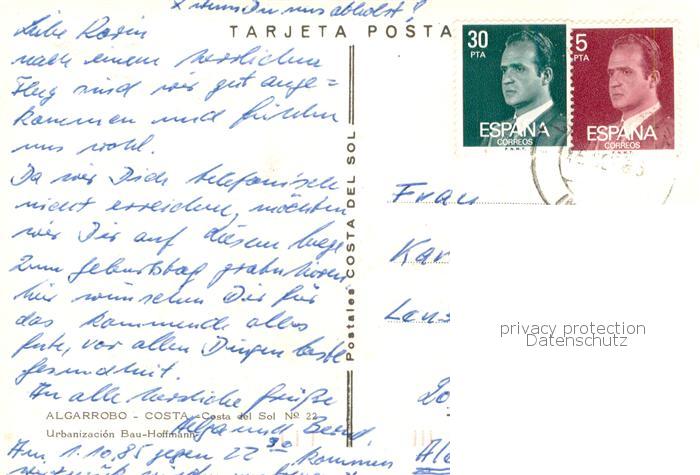 wenn Du uns abholst!
TARJETA POSTA
Liebe
nach einem herrlichen
Flug sind wir gut ange=
kommen und fühlen
uns wohl.
Da wir Dich telefonisch
nicht erreichen, möchten
wir Dir auf diesem Wege
zum Geburtstag gratulieren.
Wir wünschen Dir für
das kommende alles
Gute, vor allen Dingen beste
Gesundheit.
An alle herzliche Grüße
Helga und Bernd.
ALGARROBO - COSTA - Costa del Sol Nº 22
Urbanización Bau-Hoffmann
Am 1.10.85 gegen 22 30 kommen
wir zurück
Postales COSTA DEL SOL
30
PTA
ESPAÑA
CORREOS
F.N.M.T.
5
PTA
ESPAÑA
CORREOS
F.N.M.T.
Frau
Kar
Lens
privacy protection
Datenschutz